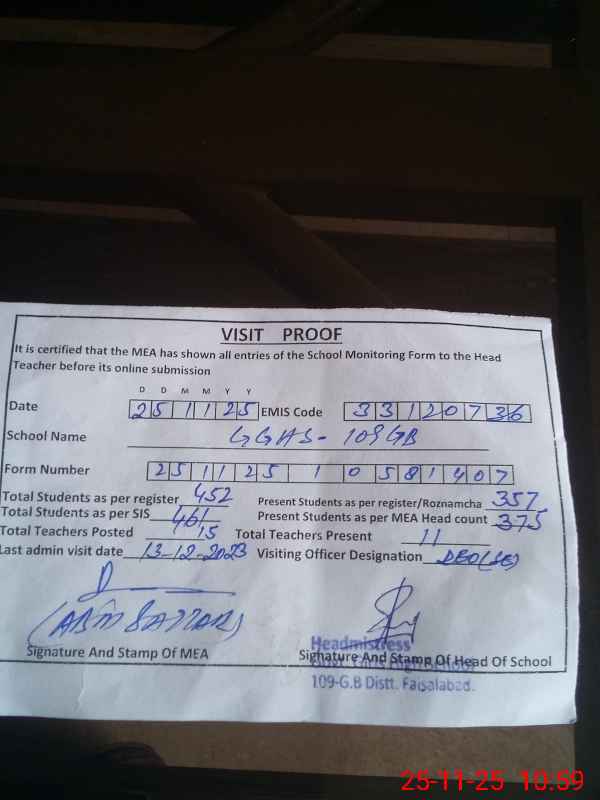 VISIT PROOF
It is certified that the MEA has shown all entries of the School Monitoring Form to the Head
Teacher before its online submission
D D M M Y Y
Date 251125 EMIS Code 33120736
School Name GGHS- 109 GB
Form Number 251125 1 0581407
Total Students as per register 452 Present Students as per register/Roznamcha 357
Total Students as per SIS 461 Present Students as per MEA Head count 375
Total Teachers Posted 15 Total Teachers Present 11
Last admin visit date 13-12-2023 Visiting Officer Designation DEO(SE)
(ABDU SATTAR)
Signature And Stamp Of MEA
Headmistress
Signature And Stamp Of Head Of School
109-G.B Distt. Faisalabad.
25-11-25 10:59